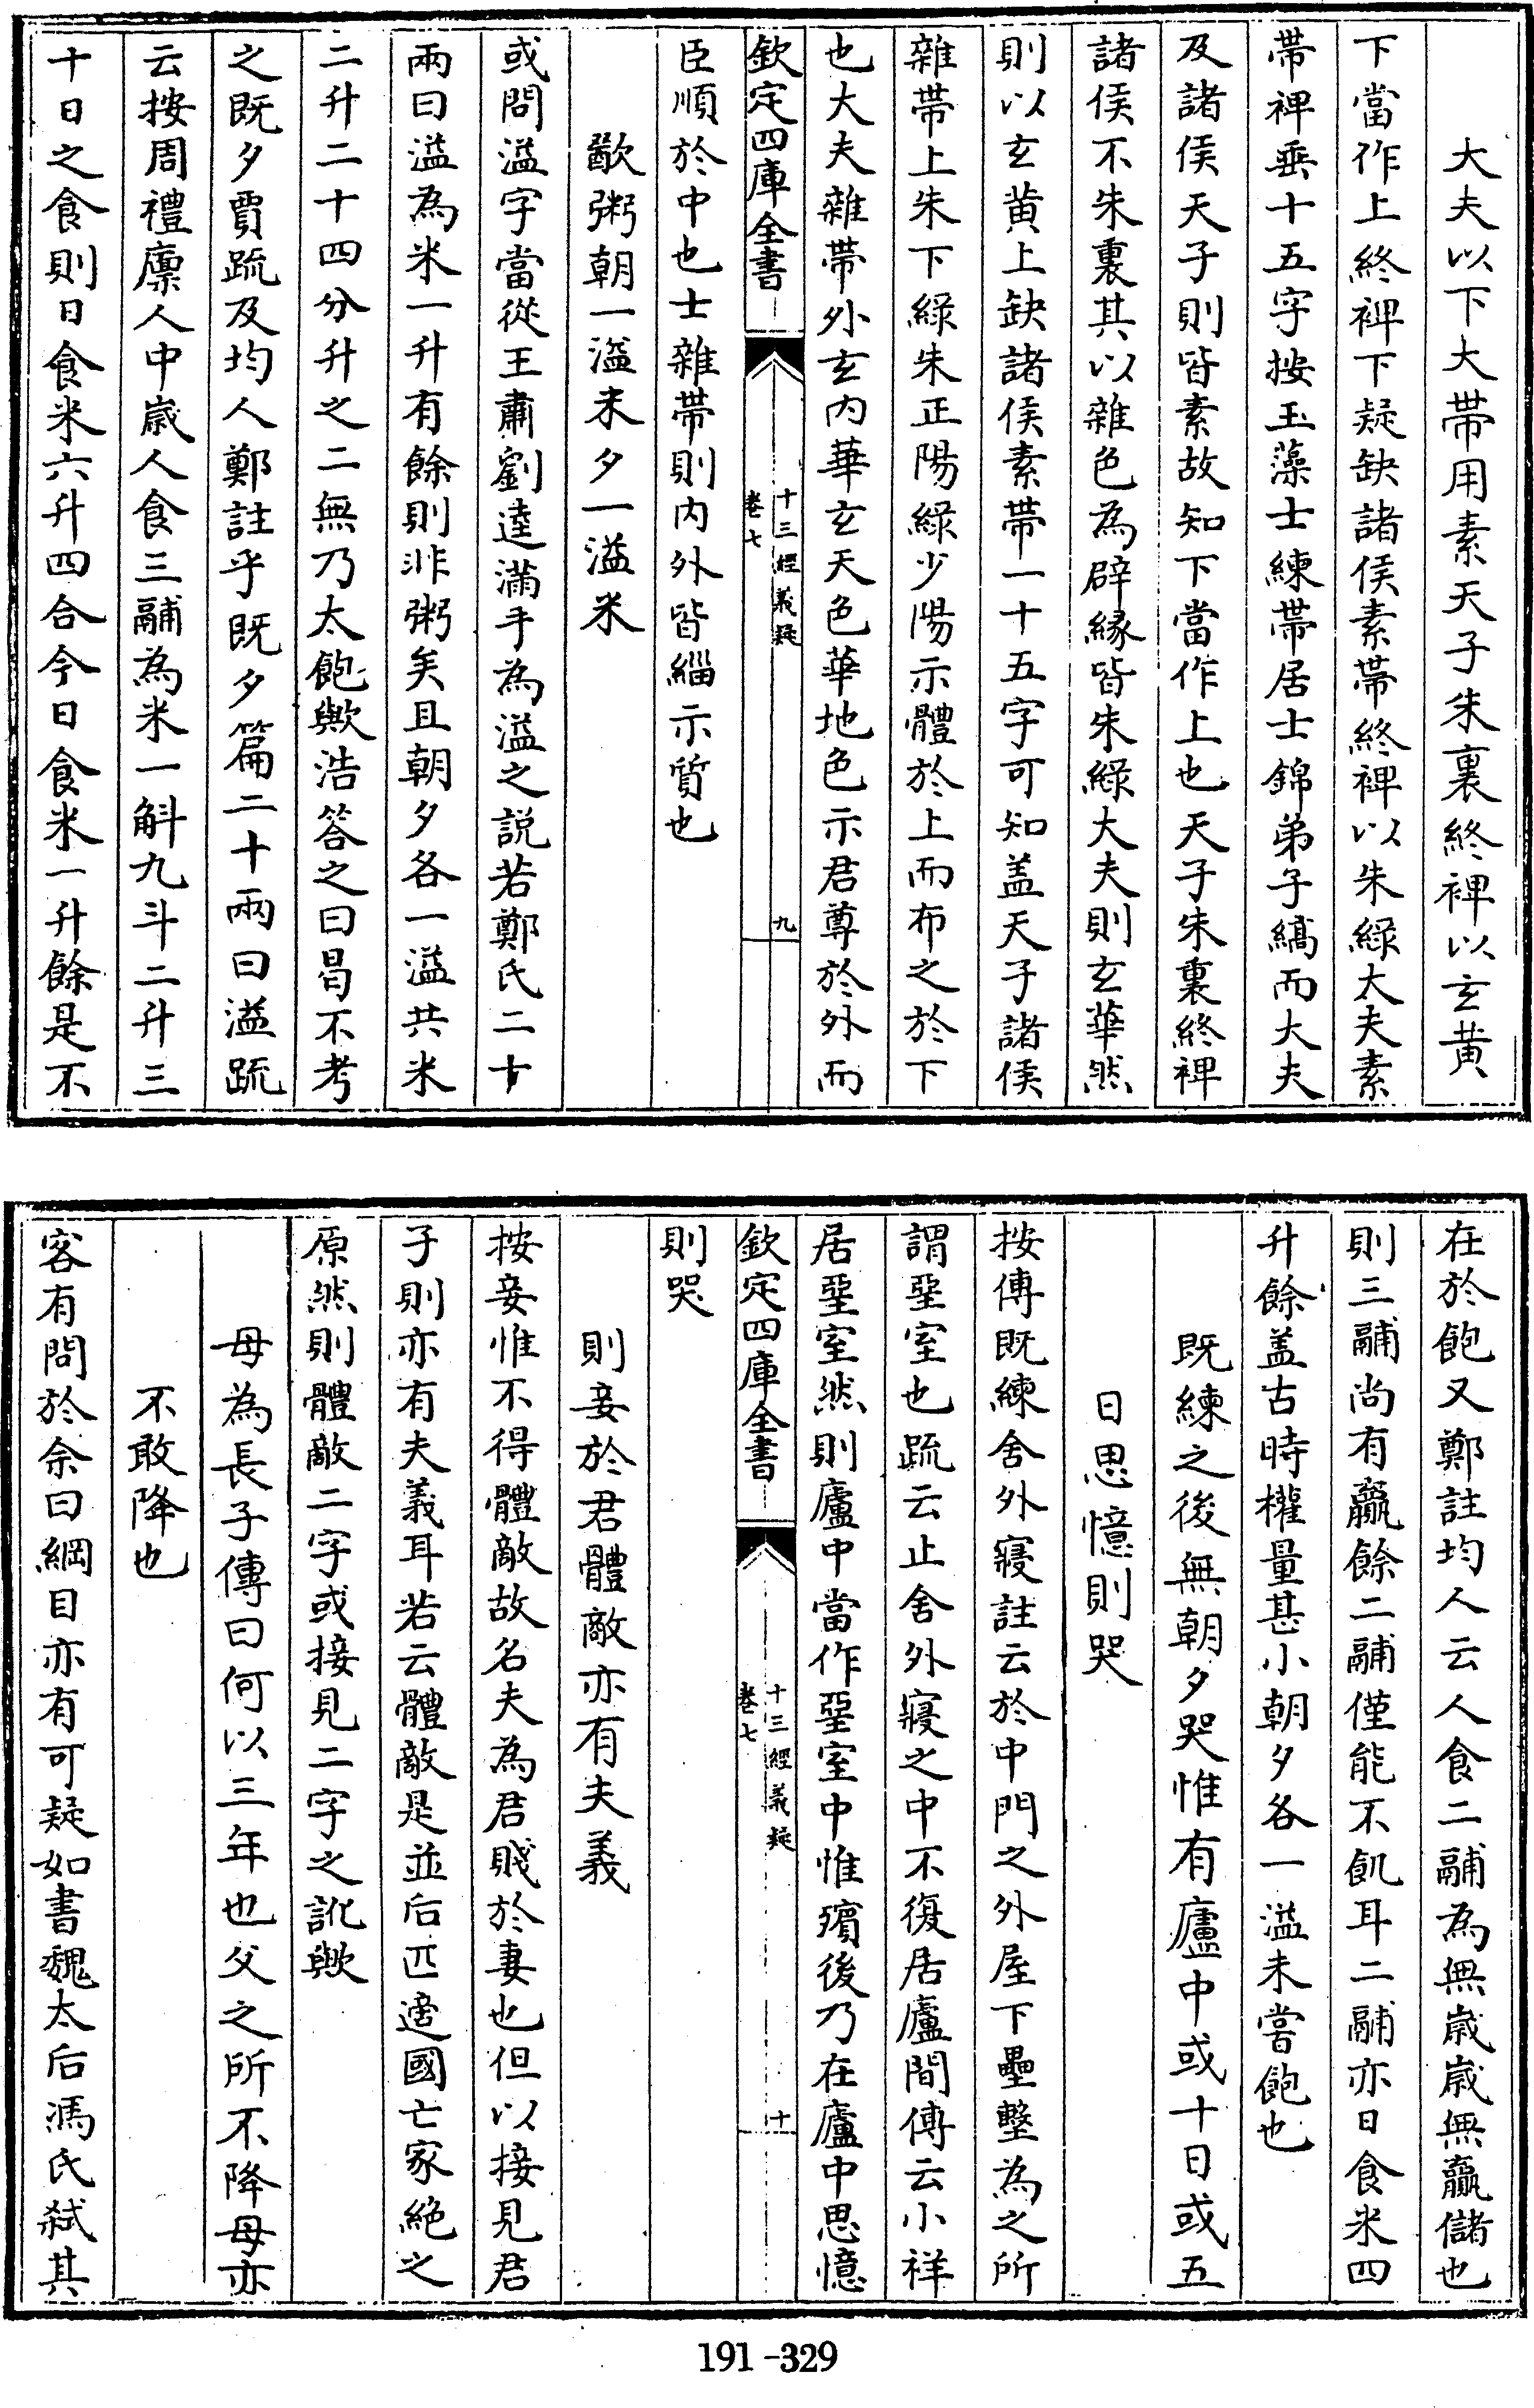 大夫以下大帶用素天子朱裏終裨以玄黃
下當作上終裨下疑缺諸侯素帶終裨以朱綠大夫素
帶裨垂十五字按玉藻士練帶居士錦弟子縞而大夫
及諸侯天子則皆素故知下當作上也天子朱裏終裨
諸侯不朱裏其以雜色為辟緣皆朱綠大夫則玄華然
則以玄黃上缺諸侯素帶一十五字可知盖天子諸侯
雜帶上朱下綠朱正陽綠少陽示體於上而布之於下
也大夫雜帶外玄內華玄天色華地色示君尊於外而
欽定四庫全書
十三經義疑
卷七
九
臣順於中也士雜帶則內外皆緇示質也
歠粥朝一溢米夕一溢米
或問溢字當從王肅劉逵滿手為溢之説若鄭氏二十
兩曰溢為米一升有餘則非粥矣且朝夕各一溢共米
二升二十四分升之二無乃太飽歟浩答之曰曷不考
之既夕賈疏及均人鄭註乎既夕篇二十兩曰溢疏
云按周禮廩人中歲人食三鬴為米一斛九斗二升三
十日之食則日食米六升四合今日食米一升餘是不
在於飽又鄭註均人云人食二鬴為無歲歲無贏儲也
則三鬴尚有贏餘二鬴僅能不飢耳二鬴亦日食米四
升餘盖古時權量甚小朝夕各一溢未嘗飽也
既練之後無朝夕哭惟有廬中或十日或五
日思憶則哭
按傳既練舍外寢註云於中門之外屋下壘墼為之所
謂堊室也疏云止舍外寢之中不復居廬間傳云小祥
居堊室然則廬中當作堊室中惟殯後乃在廬中思憶
欽定四庫全書
十三經義疑
卷七
十
則哭
則妾於君體敵亦有夫義
按妾惟不得體敵故名夫為君賤於妻也但以接見君
子則亦有夫義耳若云體敵是並后匹適國亡家絶之
原然則體敵二字或接見二字之訛歟
母為長子傳曰何以三年也父之所不降母亦
不敢降也
客有問於余曰綱目亦有可疑如書魏太后馮氏弒其
191-329